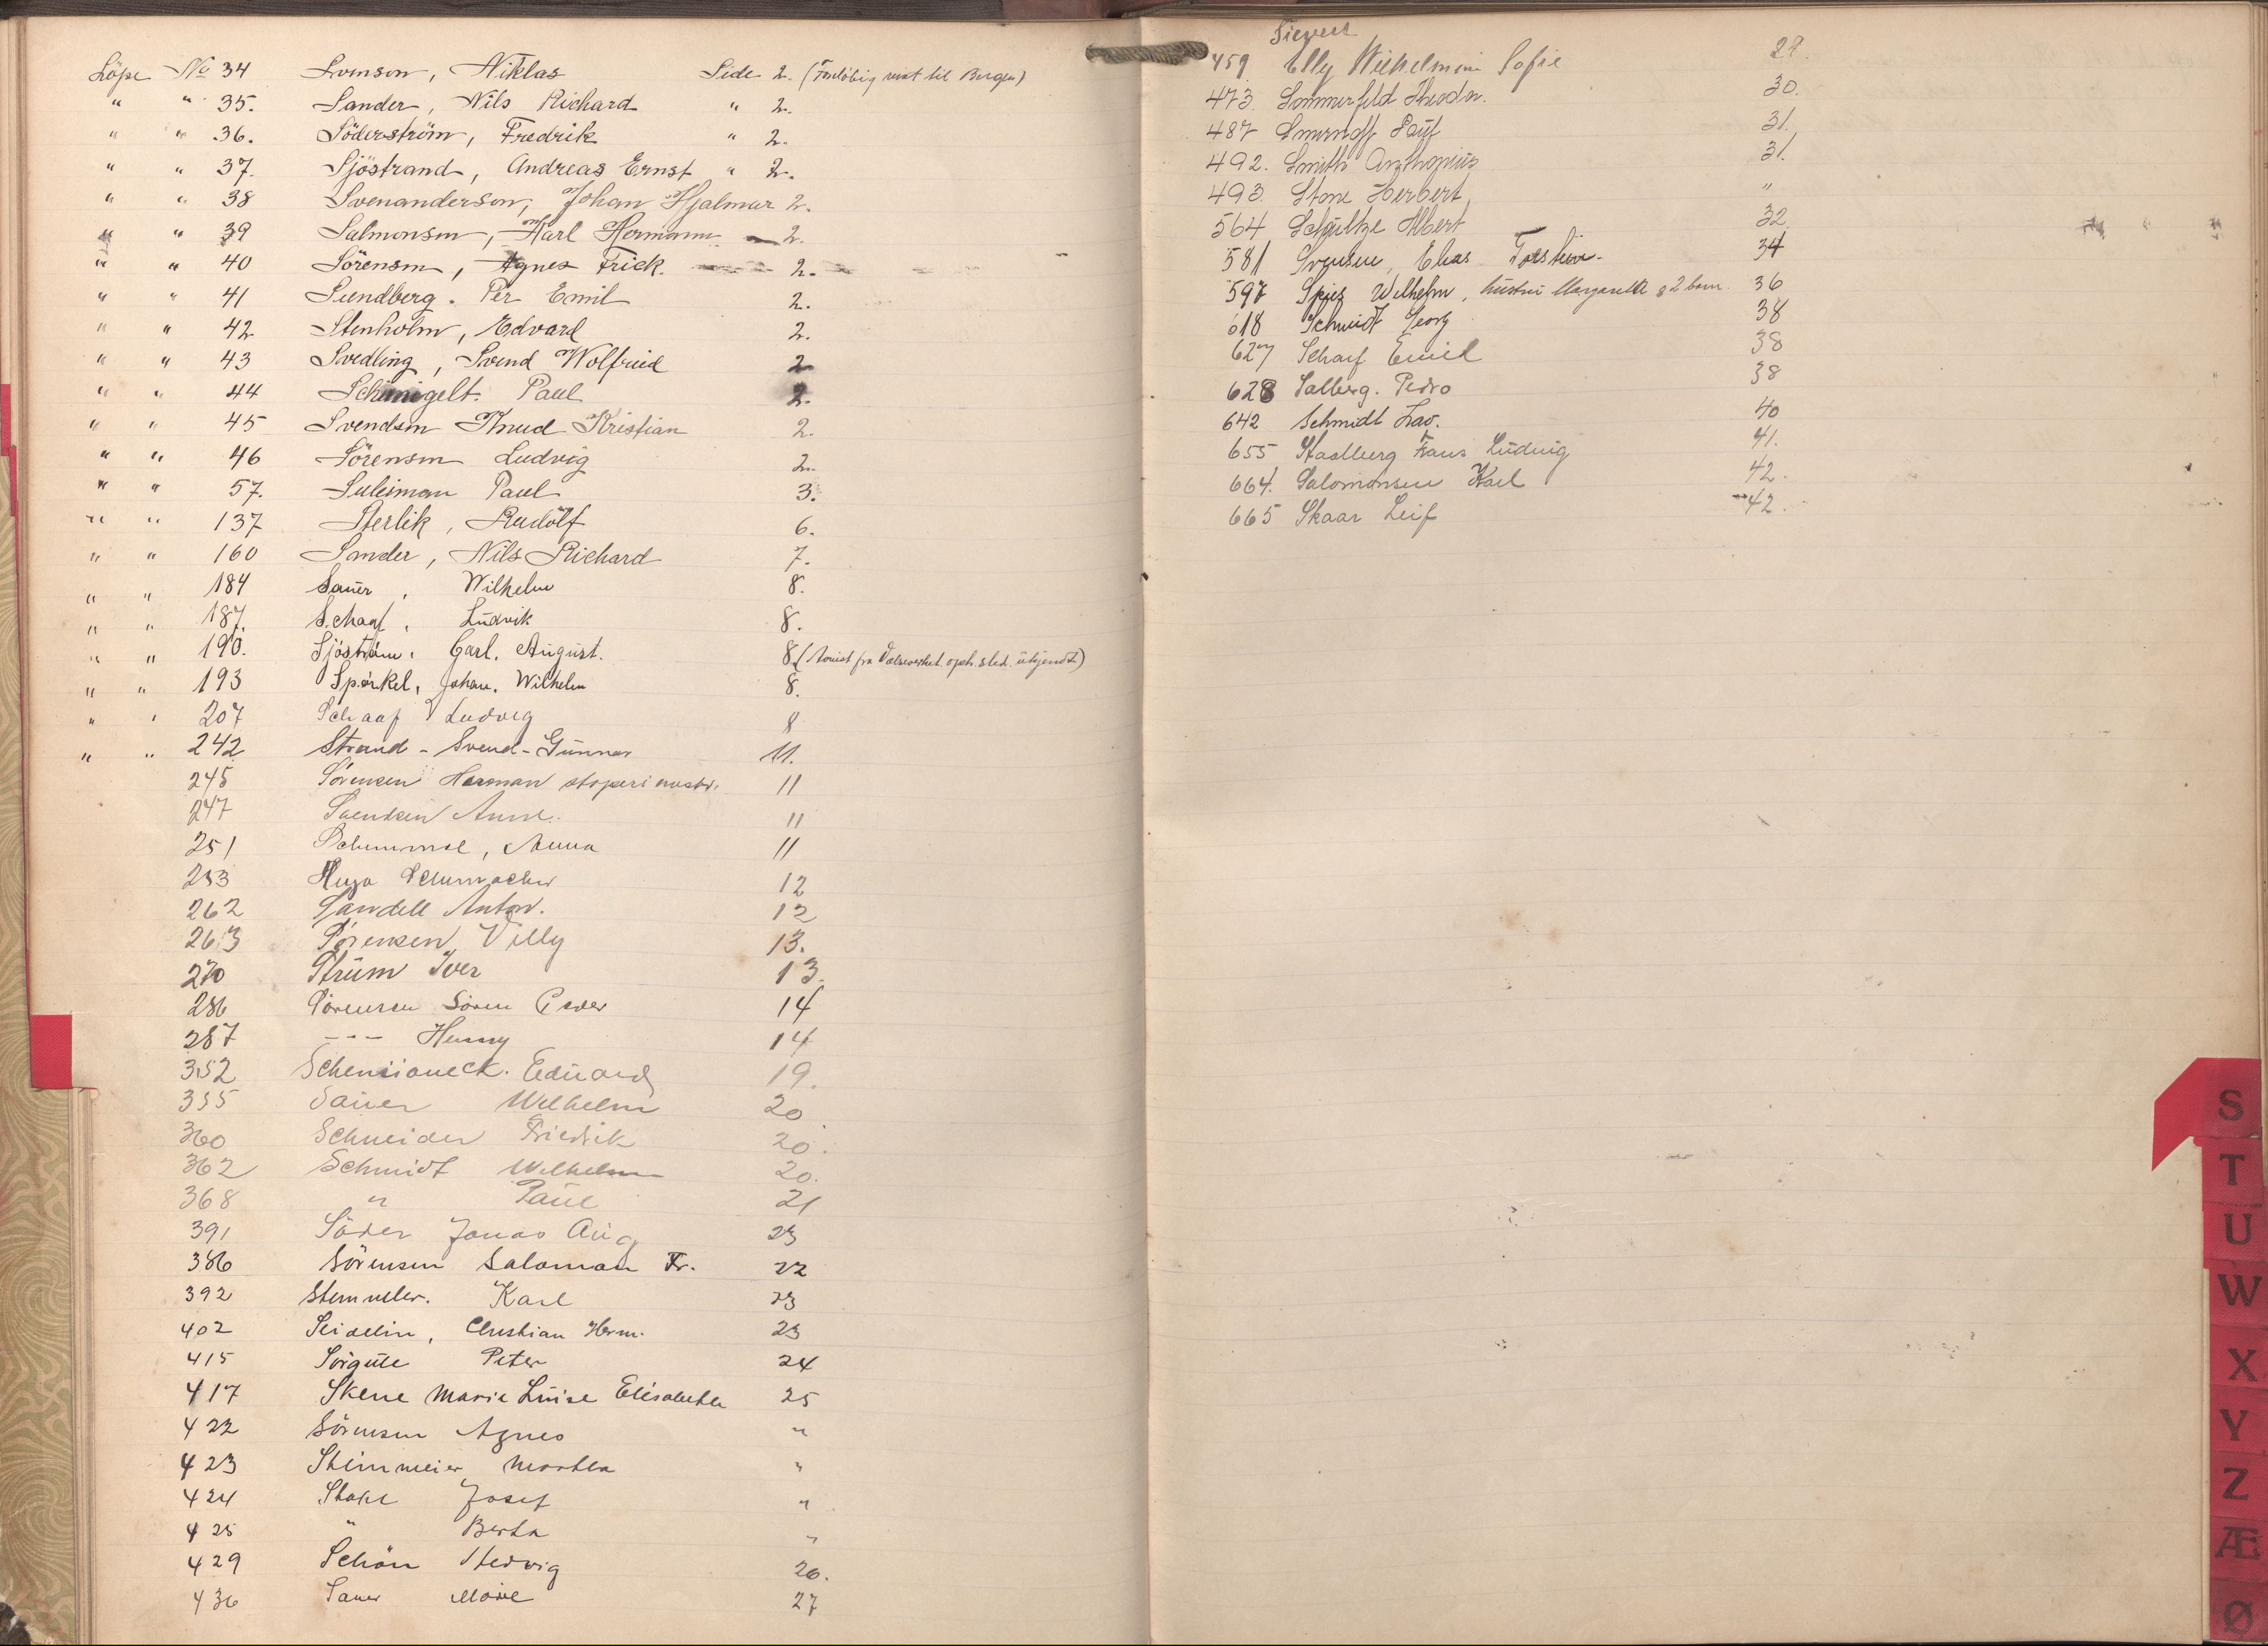 Löpe No 34 Svenson, Niklas Side 2. (Foreløbig reist til Bergen)
" " 35. Sander, Nils Richard " 2.
" " 36. Söderström, Fredrik " 2.
" " 37. Sjöstrand, Andreas Ernst " 2.
" " 38 Svenanderson, Johan Hjalmar 2.
" " 39 Salmonsen, Karl Hermann 2.
" " 40 Sörensen, Agnes Frick. 2.
" " 41 Sundberg. Per Emil 2.
" " 42. Stenholm, Edvard 2.
" " 43 Svedling, Svend Wolfried 2
" " 44 Schmigelt. Paul 2.
" " 45 Svendsen Knud Kristian 2.
" " 46 Sörensen Ludvig 2.
" " 57. Suleiman Paul 3.
" " 137 Sterlik, Rudolf 6.
" " 160 Sander, Nils Richard 7.
" " 184 Sauer, Wilhelm 8.
" " 187. Schaaf, Ludvik 8.
" " 190. Sjöström, Carl. August. 8. (
" " 193 Spörkel, Johan. Wilhelm 8.
" " 207 Schaaf Ludvig 8
" " 242 Strand - Svend - Gunnar 11.
245 Sörensen Herman 11
247 Svendsen 11
251 Anna 11
253 Hugo Schumacher 12
262 Sandell Anton. 12
263 Sörensen, Villy 13.
270 Strüm Iver 13.
286 Sörensen Sören Peder 14
287 --- Henny 14
352 Eduard 19.
355 Sauer Wilhelm 20
360 Schneider Friedrik 20.
362 Schmidt Wilhelm 20.
368 " Paul 21
391 Söder Jonas Aug 23
386 Sörensen Salomon Fr. 22
392 Stemmler. Karl 23
402 Seidelin, Christian Herm. 23
415 Peter 24
417 Skene Marie Luise Elisabeth 25
422 Sörensen Agnes "
423 Steinmeier Martha "
424 Josef "
425 " Berta "
429 Schön Hedvig 26.
436 Sauer Marie 27
Sievert
459 Elly Wilhelmine Sofie 29.
473. Sommerfeld Theodor. 30.
487 Smirnoff Paul 31.
492. Smith 31.
493. Stone Herbert "
564 Schultze Albert 32
581 Svensen, Elias Torstein. 34
597 Spies Wilhelm, hustru Margareta & 2 barn. 36
618 Schmidt Georg 38
627 Scharf Emil 38
628 Salberg. Pedro 38
642 Schmidt Leo. 40
655 Stadlberg Frans Ludwig 41.
664. Salomonsen Karl 42.
665 Skaar Leif 42.
S
T
U
W
X
Y
Z
Æ
Ø